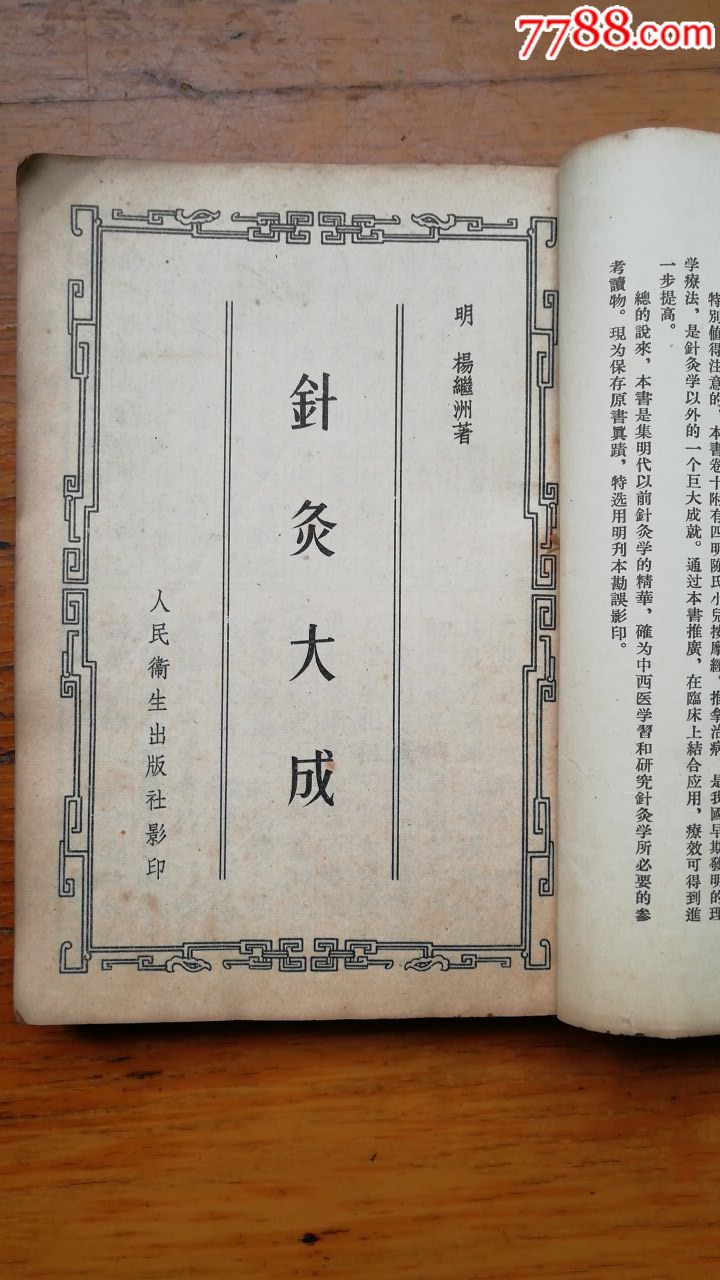 7788.com
特別值得注意的，本書卷十附有四明陈氏小兒按摩經。推拿治病，是我國早期發明的理
学療法，是針灸学以外的一个巨大成就。通过本書推廣，在臨床上結合应用，療效可得到進
一步提高。
總的說來，本書是集明代以前針灸学的精華，確为中西医学習和研究針灸学所必要的参
考讀物。現为保存原書眞蹟，特选用明刊本勘誤影印。
明 楊繼洲著
針灸大成
人民衞生出版社影印